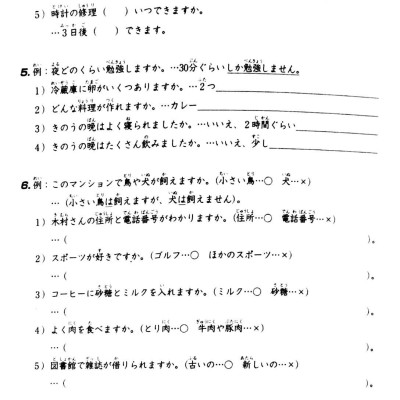 5) 時計の修理 (　) いつできますか。
…3日後 (　) できます。
5. 例：夜どのくらい勉強しますか。…30分ぐらいしか勉強しません。
1) 冷蔵庫に卵がいくつありますか。…2つ
2) どんな料理が作れますか。…カレー
3) きのうの晩はよく寝られましたか。…いいえ、2時間ぐらい
4) きのうの晩はたくさん飲みましたか。…いいえ、少し
6. 例：このマンションで鳥や犬が飼えますか。(小さい鳥…○　犬…×)
…(小さい鳥は飼えますが、犬は飼えません)。
1) 木村さんの住所と電話番号がわかりますか。(住所…○　電話番号…×)
…(　)。
2) スポーツが好きですか。(ゴルフ…○　ほかのスポーツ…×)
…(　)。
3) コーヒーに砂糖とミルクを入れますか。(ミルク…○　砂糖…×)
…(　)。
4) よく肉を食べますか。(とり肉…○　牛肉や豚肉…×)
…(　)。
5) 図書館で雑誌が借りられますか。(古いの…○　新しいの…×)
…(　)。